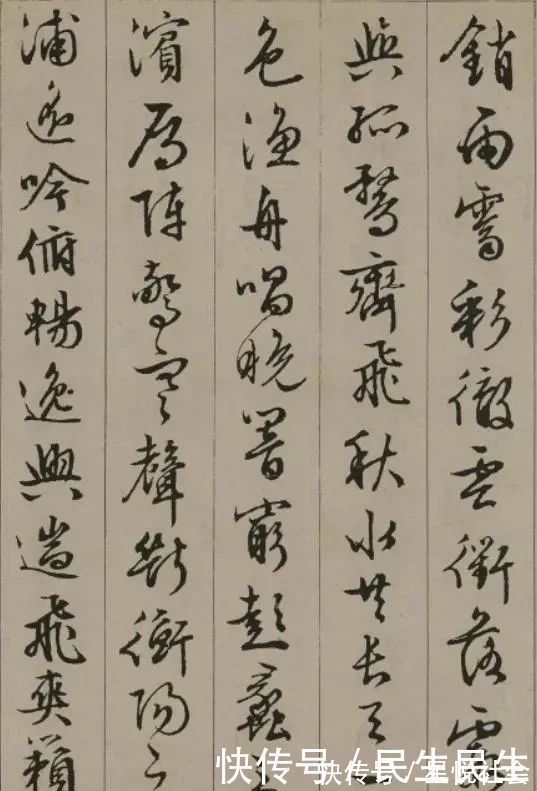 銷雨霽彩徹雲衢落霞
與孤鶩齊飛秋水共長天一
色漁舟唱晚響窮彭蠡
濱雁陣驚寒聲斷衡陽之
浦遙吟俯暢逸興遄飛爽籟
快传号 / 民生民生
快传号/